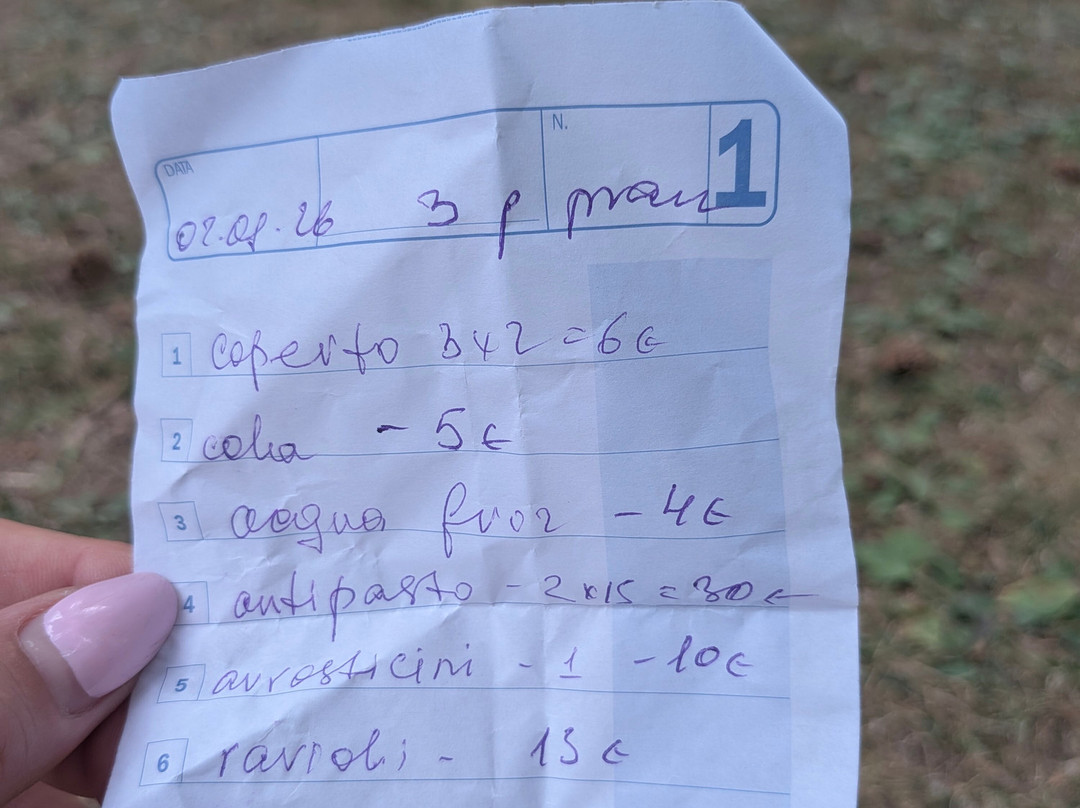 DATA N. 1
02.08.26 3 p pran
1 coperto 3x2 = 6€
2 coka - 5€
3 acqua frizz - 4€
4 antipasto - 2x15 = 30€
5 arrosticini - 1 - 10€
6 ravioli - 13€